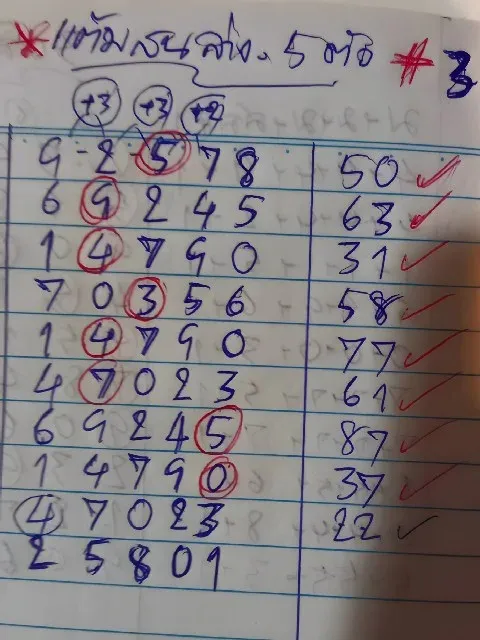 * แต้มสนล่าง. 5 ตัว * 3
+3 +3 +2
9-2-5 7 8 50 ✓
6 9 2 4 5 63 ✓
1 4 7 9 0 31 ✓
7 0 3 5 6 58 ✓
1 4 7 9 0 77 ✓
4 7 0 2 3 61 ✓
6 9 2 4 5 87 ✓
1 4 7 9 0 37 ✓
4 7 0 2 3 22 ✓
2 5 8 0 1